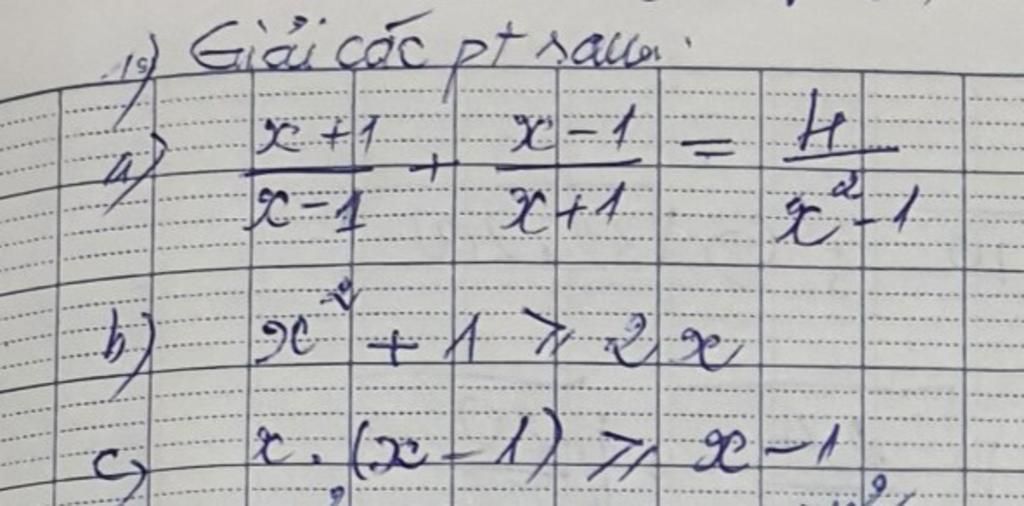 15) Giải các pt sau:
a) \frac{x+1}{x-1} + \frac{x-1}{x+1} = \frac{4}{x^2-1}
b) x^2 + 1 ⩾ 2x
c) x.(x-1) ⩾ x-1